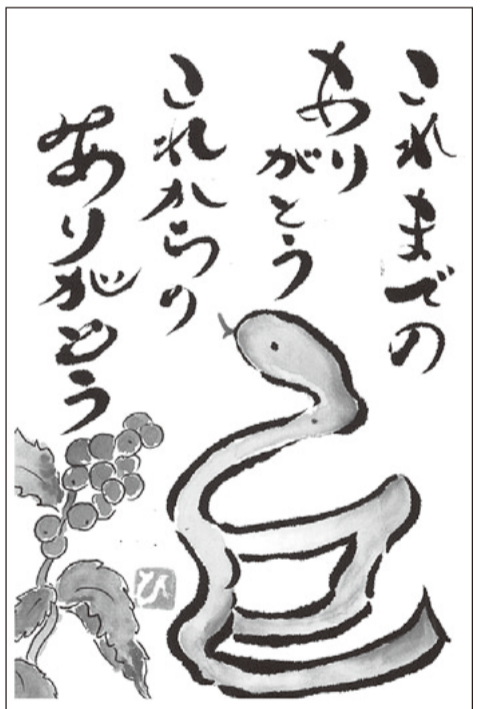 これまでの
ありがとう
これからの
ありがとう
ひ